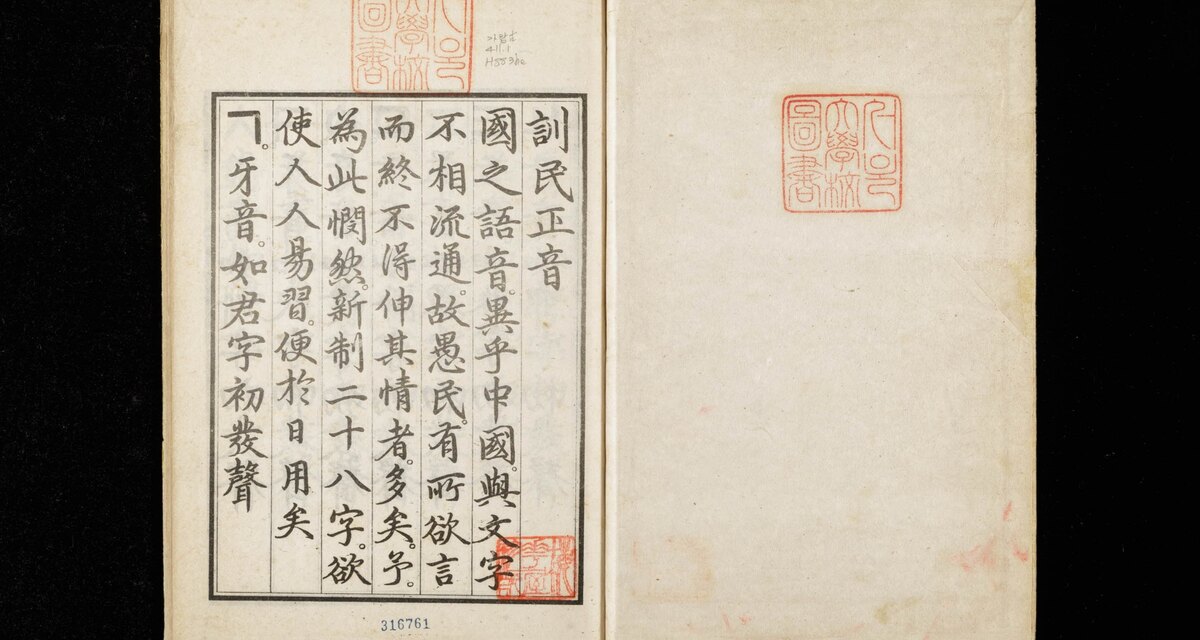 訓民正音
國之語音。異乎中國。與文字
不相流通。故愚民。有所欲言
而終不得伸其情者。多矣。予。
為此憫然。新制二十八字。欲
使人人易習。便於日用矣
ㄱ。牙音。如君字初發聲
가람古
411.1
316761
서울
大學校
圖書